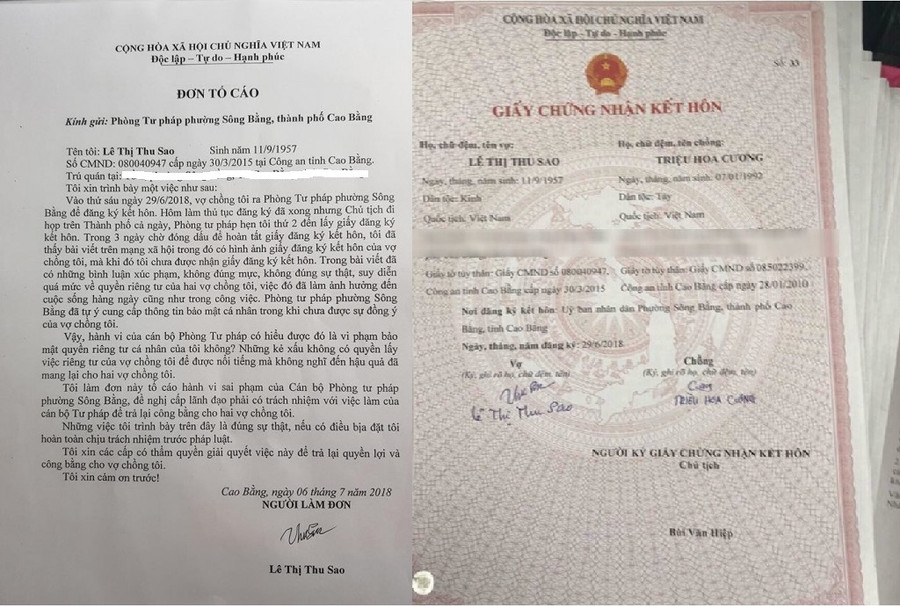 CỘNG HÒA XÃ HỘI CHỦ NGHĨA VIỆT NAM
Độc lập – Tự do – Hạnh phúc
ĐƠN TỐ CÁO
Kính gửi: Phòng Tư pháp phường Sông Bằng, thành phố Cao Bằng
Tên tôi: Lê Thị Thu Sao Sinh năm 11/9/1957
Số CMND: 080040947 cấp ngày 30/3/2015 tại Công an tỉnh Cao Bằng.
Trú quán tại:
Tôi xin trình bày một việc như sau:
Vào thứ sáu ngày 29/6/2018, vợ chồng tôi ra Phòng Tư pháp phường Sông
Bằng để đăng ký kết hôn. Hôm làm thủ tục đăng ký đã xong nhưng Chủ tịch đi
họp trên Thành phố cả ngày, Phòng tư pháp hẹn tôi thứ 2 đến lấy giấy đăng ký
kết hôn. Trong 3 ngày chờ đóng dấu để hoàn tất giấy đăng ký kết hôn, tôi đã
thấy bài viết trên mạng xã hội trong đó có hình ảnh giấy đăng ký kết hôn của vợ
chồng tôi, mà khi đó tôi chưa được nhận giấy đăng ký kết hôn. Trong bài viết đã
có những bình luận xúc phạm, không đúng mực, không đúng sự thật, suy diễn
quá mức về quyền riêng tư của hai vợ chồng tôi, việc đó đã làm ảnh hưởng đến
cuộc sống hàng ngày cũng như trong công việc. Phòng tư pháp phường Sông
Bằng đã tự ý cung cấp thông tin bảo mật cá nhân trong khi chưa được sự đồng ý
của vợ chồng tôi.
Vậy, hành vi của cán bộ Phòng Tư pháp có hiểu được đó là vi phạm bảo
mật quyền riêng tư cá nhân của tôi không? Những kẻ xấu không có quyền lấy
việc riêng tư của vợ chồng tôi để được nổi tiếng mà không nghĩ đến hậu quả đã
mang lại cho hai vợ chồng tôi.
Tôi làm đơn này tố cáo hành vi sai phạm của Cán bộ Phòng tư pháp
phường Sông Bằng, đề nghị cấp lãnh đạo phải có trách nhiệm với việc làm của
cán bộ Tư pháp để trả lại công bằng cho hai vợ chồng tôi.
Những việc tôi trình bày trên đây là đúng sự thật, nếu có điều bịa đặt tôi
hoàn toàn chịu trách nhiệm trước pháp luật.
Tôi xin các cấp có thẩm quyền giải quyết việc này để trả lại quyền lợi và
công bằng cho vợ chồng tôi.
Tôi xin cảm ơn trước!
Cao Bằng, ngày 06 tháng 7 năm 2018
NGƯỜI LÀM ĐƠN
Lê Thị Thu Sao
CỘNG HÒA XÃ HỘI CHỦ NGHĨA VIỆT NAM
Độc lập - Tự do - Hạnh phúc
Số 33
GIẤY CHỨNG NHẬN KẾT HÔN
Họ, chữ đệm, tên vợ: Họ, chữ đệm, tên chồng:
LÊ THỊ THU SAO TRIỆU HOA CƯƠNG
Ngày, tháng, năm sinh: 11/9/1957 Ngày, tháng, năm sinh: 07/01/1992
Dân tộc: Kinh Dân tộc: Tày
Quốc tịch: Việt Nam Quốc tịch: Việt Nam
Giấy tờ tùy thân: Giấy CMND số 080040947, Giấy tờ tùy thân: Giấy CMND số 085022399,
Công an tỉnh Cao Bằng cấp ngày 30/3/2015 Công an tỉnh Cao Bằng cấp ngày 28/01/2010
Nơi đăng ký kết hôn: Uỷ ban nhân dân Phường Sông Bằng, thành phố Cao
Bằng, tỉnh Cao Bằng
Ngày, tháng, năm đăng ký: 29/6/2018
Vợ Chồng
(Ký, ghi rõ họ, chữ đệm, tên) (Ký, ghi rõ họ, chữ đệm, tên)
Lê Thị Thu Sao TRIỆU HOA CƯƠNG
NGƯỜI KÝ GIẤY CHỨNG NHẬN KẾT HÔN
Chủ tịch
Bùi Văn Hiệp